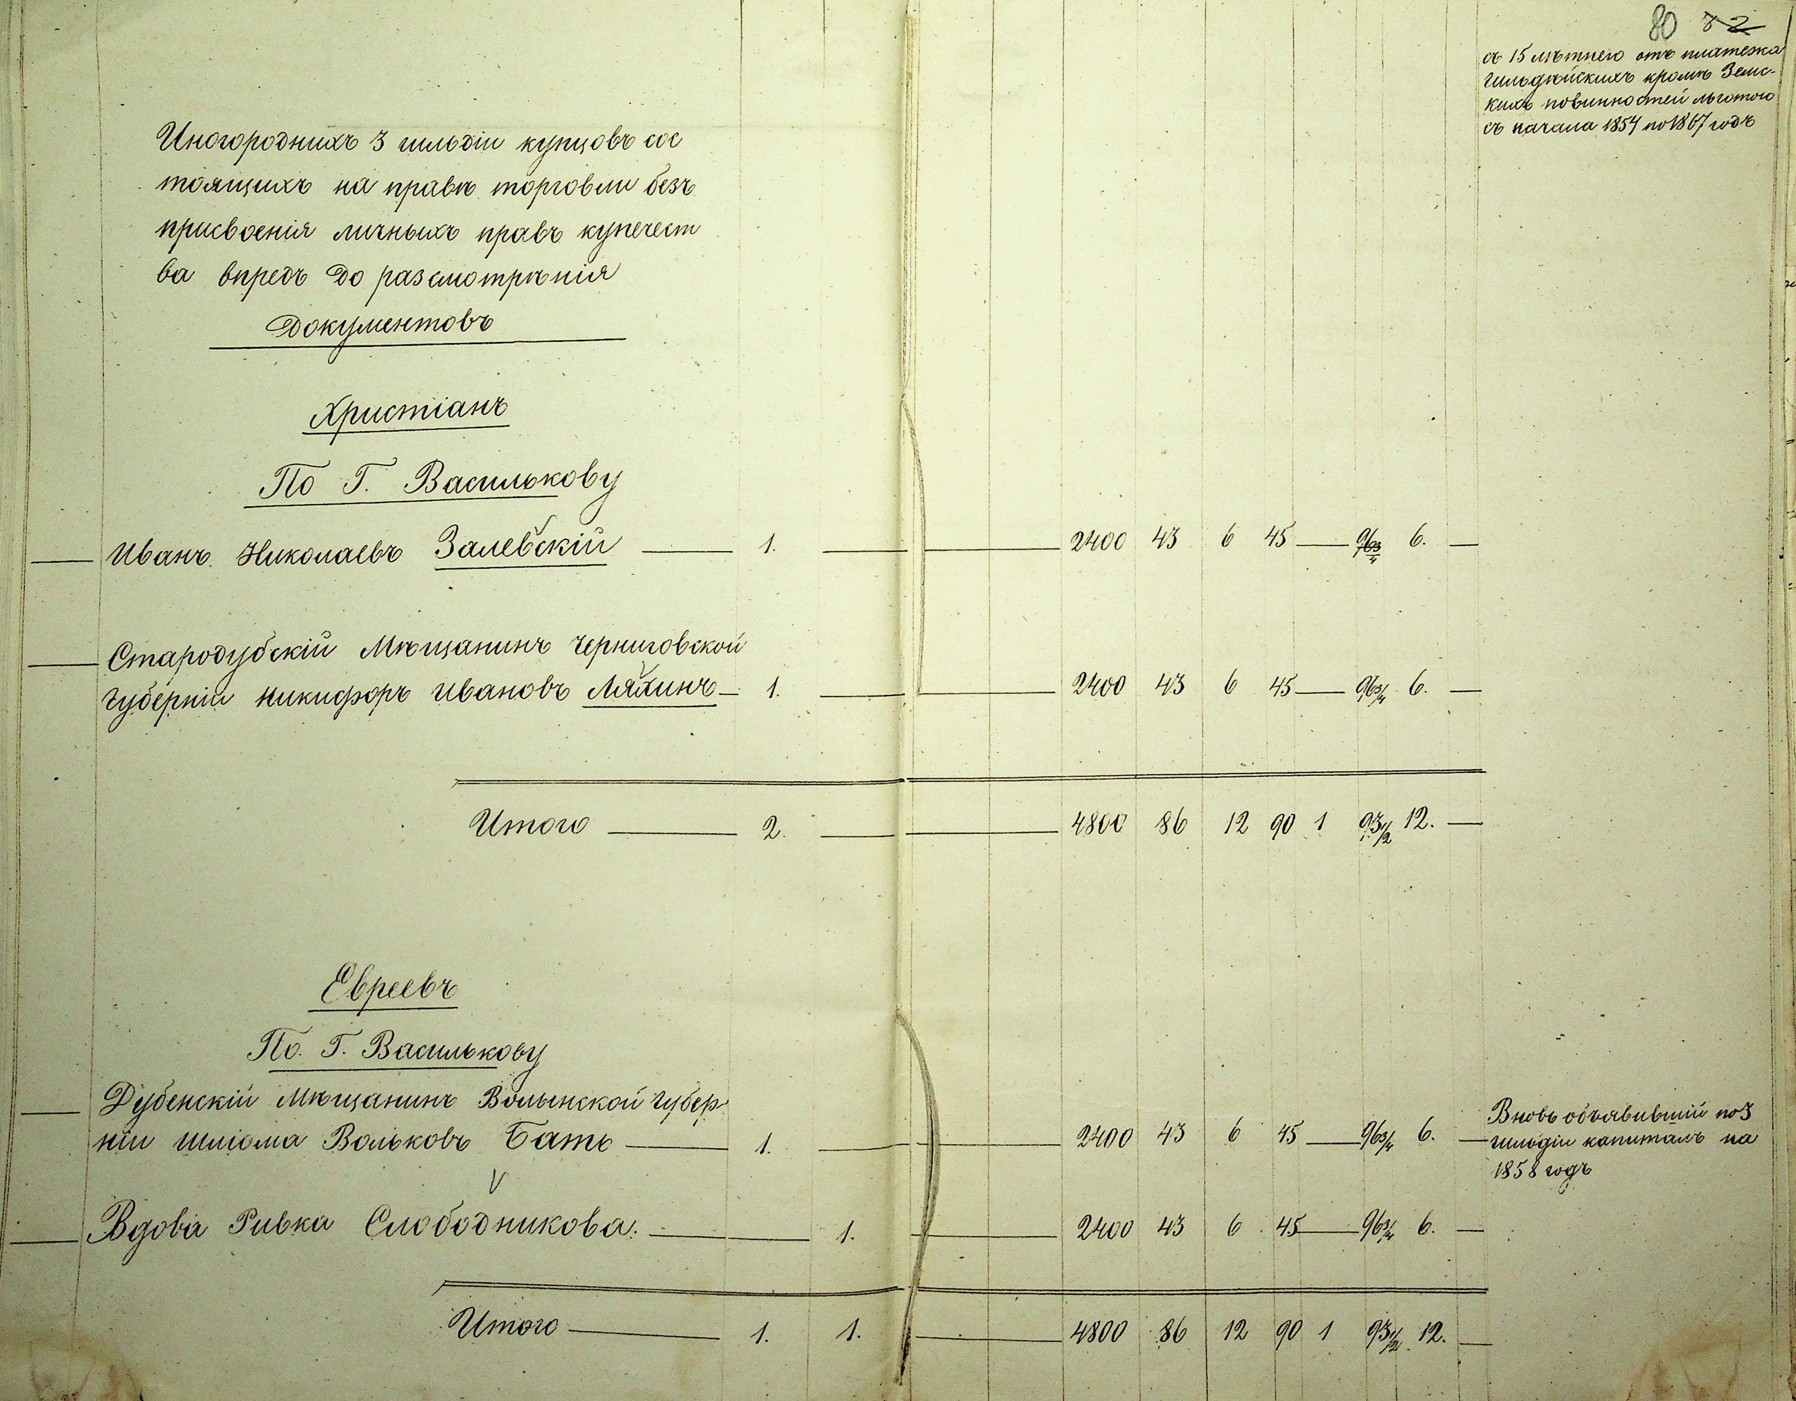 80 72
съ 15 лѣтнею отъ платежа
гильдейскихъ кромѣЗемс-
кихъ повинностей льготою
съ начала 1854 по 1867 годъ
Иногороднихъ 3 гильдіи купцовъ сос
тоящихъ на правѣ торговли безъ
присвоенія личныхъ правъ купечест
ва впредь до разсмотрѣнія
Документовъ
Христіанъ
По Г. Василькову
Иванъ Николаевъ Залевскій 1. 2400 43 6 45 96 3/4 6.
Стародубскій Мѣщанинъ Черниговской
Губерніи Никифоръ Ивановъ Лялинъ 1. 2400 43 6 45 96 3/4 6.
Итого 2. 4800 86 12 90 1 93 1/2 12.
Евреевъ
По. Г. Василькову
Дубенскій Мѣщанинъ Волынской Губер
ніи Шліома Вольковъ Бать 1. 2400 43 6 45 96 3/4 6.
Вновь объявившій по 3
гильдіи капиталъ на
1858 годъ
Вдова Ривка Слободникова. 1. 2400 43 6 45 96 3/4 6.
Итого 1. 1. 4800 86 12 90 1 93 1/2 12.